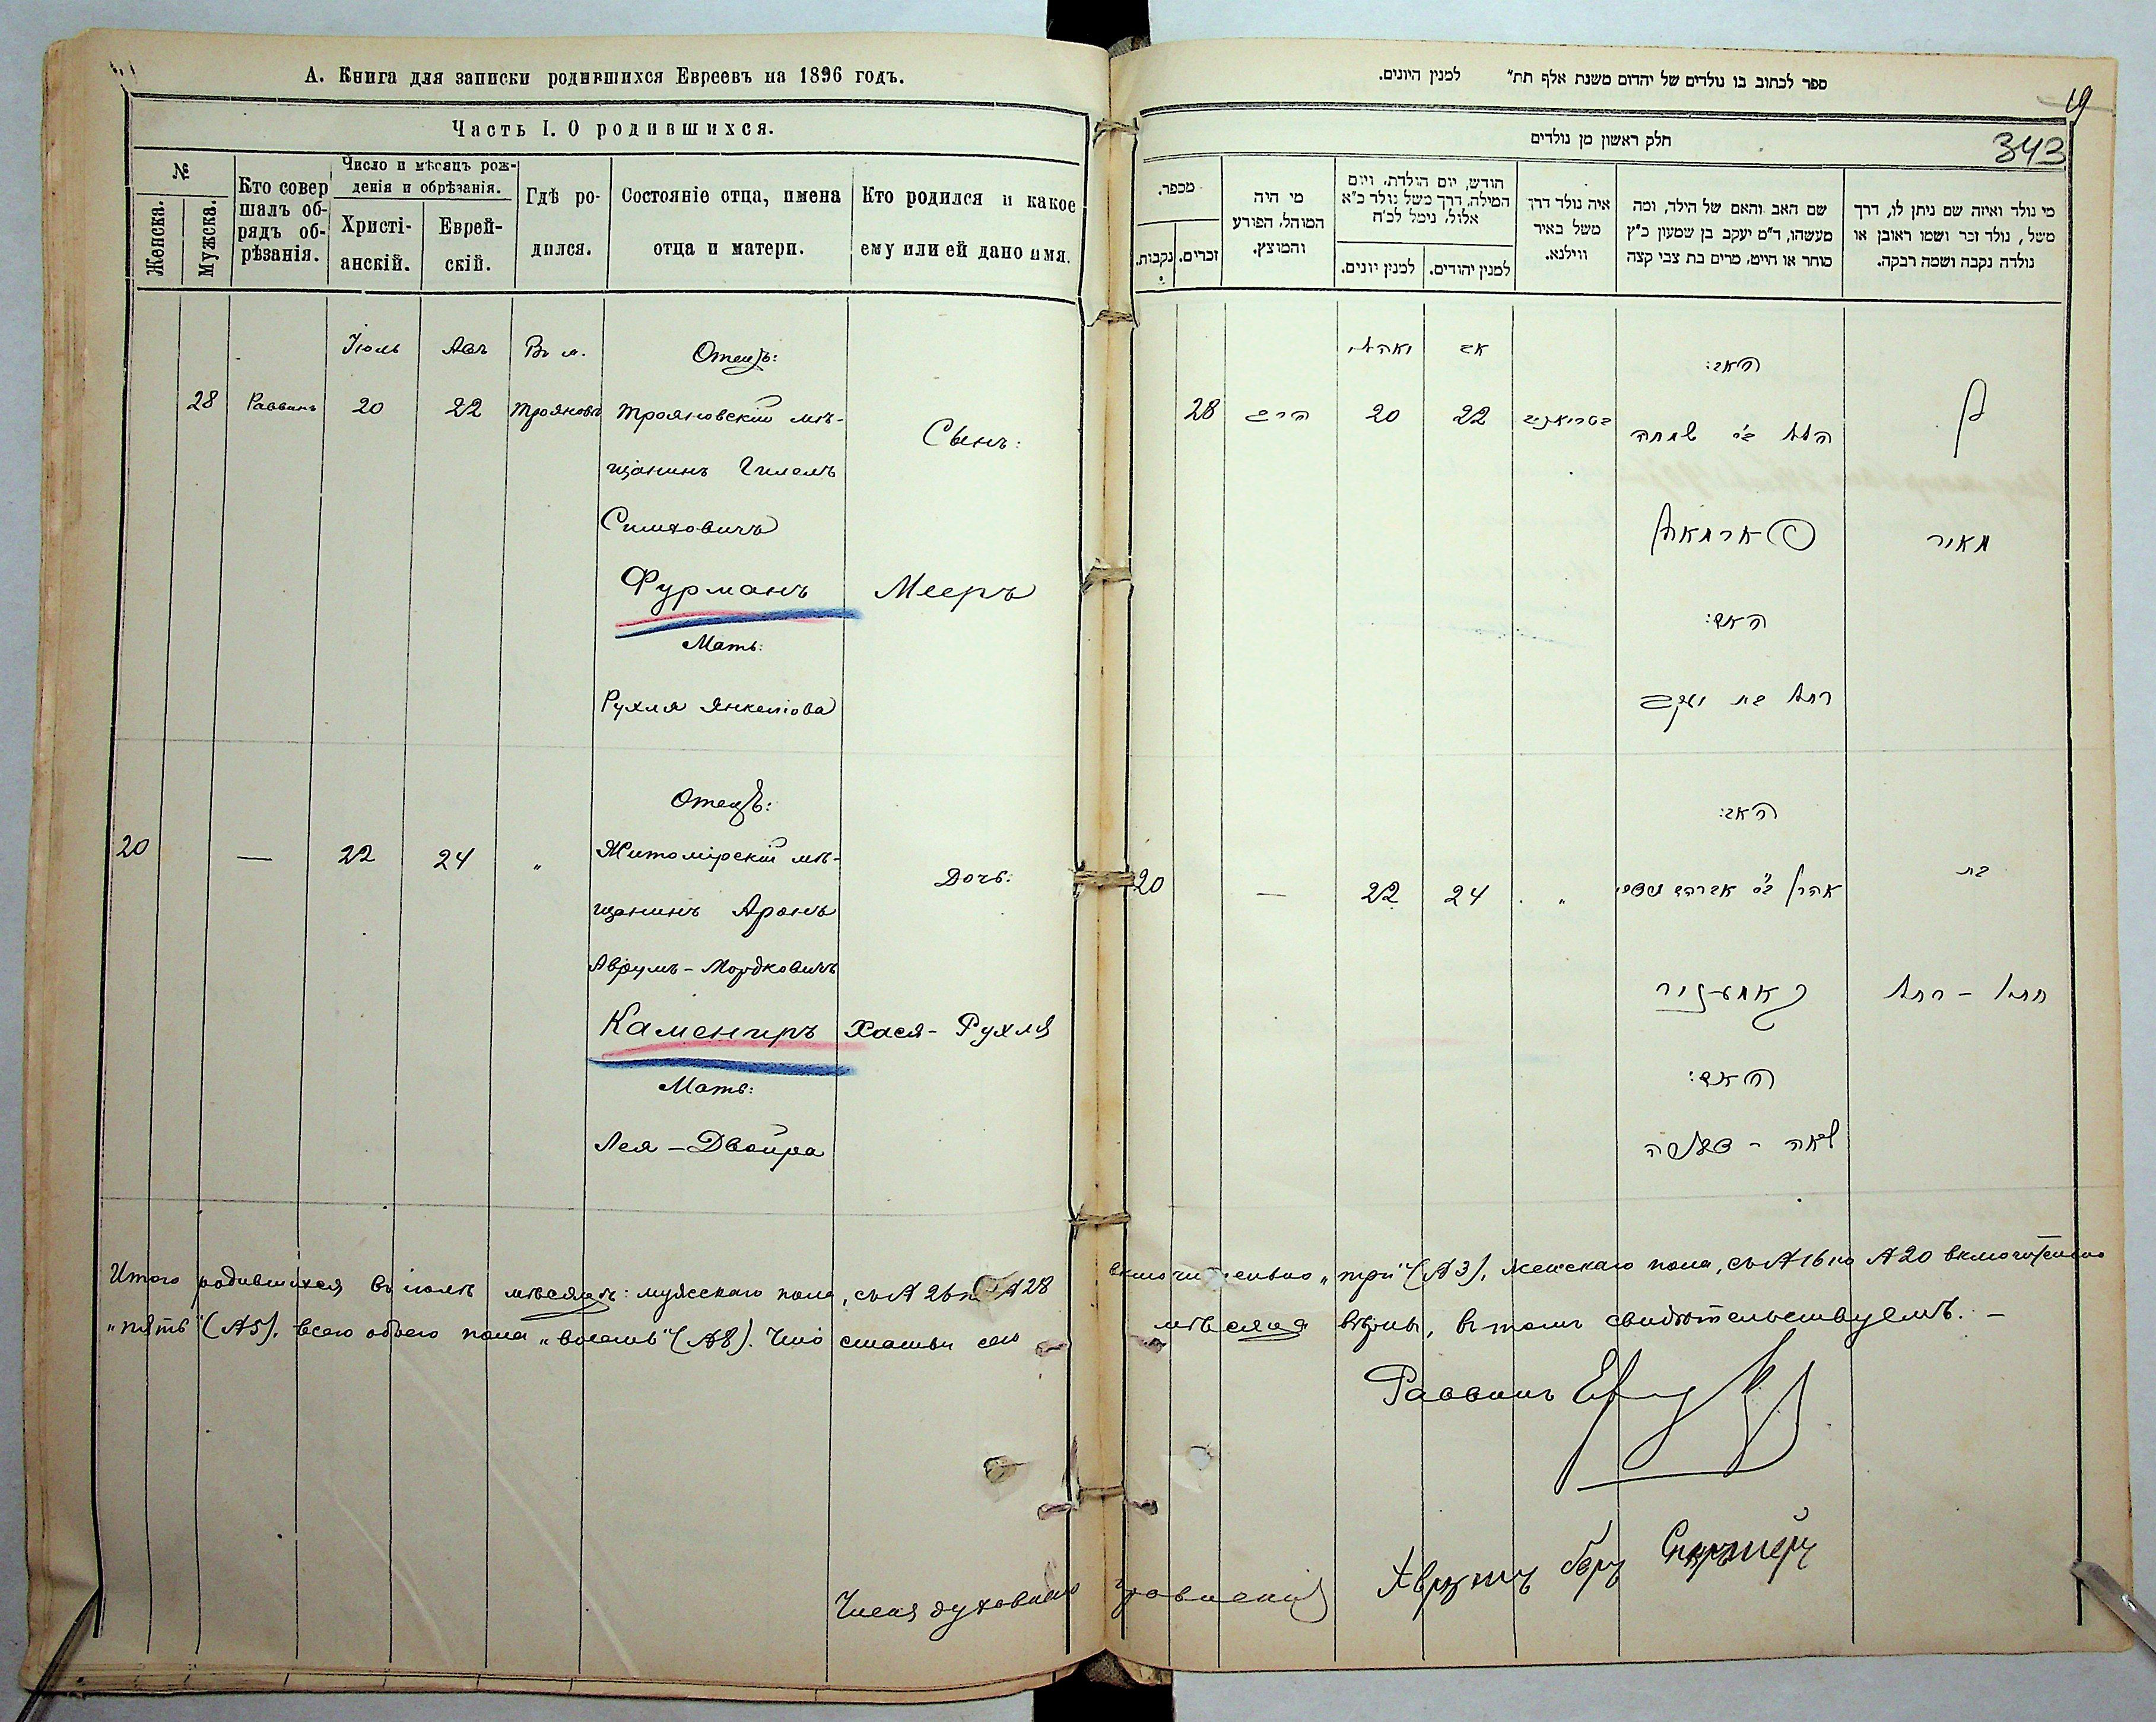 А. Книга для записки родившихся Евреевъ на 1896 годъ.
Часть I. О родившихся.
№
Женска.
Мужска.
Кто совер
шалъ об-
рядъ об-
рѣзанія.
Число и мѣсяцъ рож-
денія и обрѣзанія.
Христі-
анскій.
Еврей-
скій.
Гдѣ ро-
дился.
Состояніе отца, имена
отца и матери.
Кто родился и какое
ему или ей дано имя.
Іюль Авъ Въ м. Отецъ:
28 Раввинъ 20 22 Трояновъ Трояновскій мѣ-
Сынъ:
щанинъ Гилель
Симховичъ
Фурманъ Мееръ
Мать:
Рухля Янкелiова
Отецъ:
20 — 22 24 „ Житомірскій мѣ-
Дочь:
щанинъ Аронъ
Аврумъ-Мордковичъ
Камениръ Хася-Рухля
Мать:
Лея-Двойра
Итого родившихся въ іюлѣ мѣсяцѣ: мужскаго пола, съ № 26 по № 28
„пять" (№ 5). Всего обоего пола „восемь" (№ 8). Что статьи сего
Члена духовнаго
ספר לכתוב בו נולדים של יהדום משנת אלף תת״ למנין היונים.
19
343
חלק ראשון מן נולדים
מכפר.
נקבות.
זכרים.
מי היה
המוהל, הפורע
והמוצץ.
חודש, יום הולדת, ויום
המילה, דרך משל נולד כ״א
אלול, נימל לכ״ח
למנין יונים.
למנין יהודים.
איה נולד דרך
משל באיר
ווילנא.
שם האב והאם של הילד, ומה
מעשהו, ד״מ יעקב בן שמעון כ״ץ
סוחר או חייט, מרים בת צבי קצה
מי נולד ואיזה שם ניתן לו, דרך
משל, נולד זכר ושמו ראובן או
נולדה נקבה ושמה רבקה.
אב
האב:
28 הרב 20 22 הלל ב״ר שמחה בן
מאיר
האם:
רחל בת יעקב
האב:
20 — 22 24 „ אהרן ב״ר אברהם מרדכי בת
קאמעניר חסיא - רחל
האם:
לאה - דבורה
включительно „три" (№ 3), женскаго пола, съ № 16 по № 20 включительно
мѣсяца вѣрны, въ томъ свидѣтельствуемъ. —
Раввинъ
Правленія Аврумъ Беръ